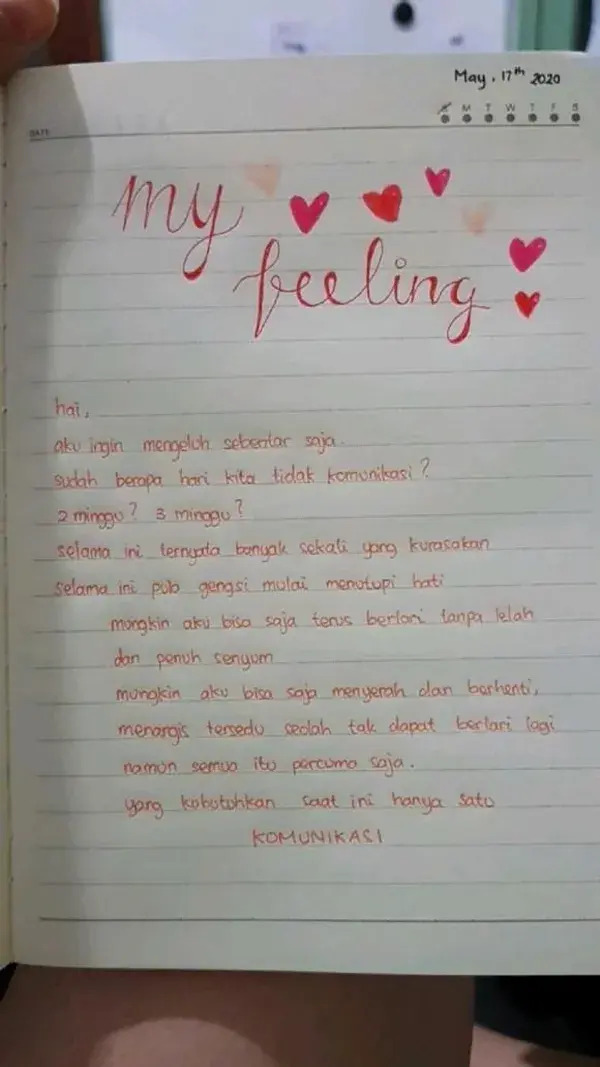 May, 17th 2020
S M T W T F S
DATE
my
feeling
hai,
aku ingin mengeluh sebentar saja.
sudah berapa hari kita tidak komunikasi?
2 minggu? 3 minggu?
selama ini ternyata banyak sekali yang kurasakan
selama ini pula gengsi mulai menutupi hati
mungkin aku bisa saja terus berlari tanpa lelah
dan penuh senyum
mungkin aku bisa saja menyerah dan berhenti,
menangis tersedu seolah tak dapat berlari lagi
namun semua itu percuma saja.
yang kubutuhkan saat ini hanya satu
KOMUNIKASI